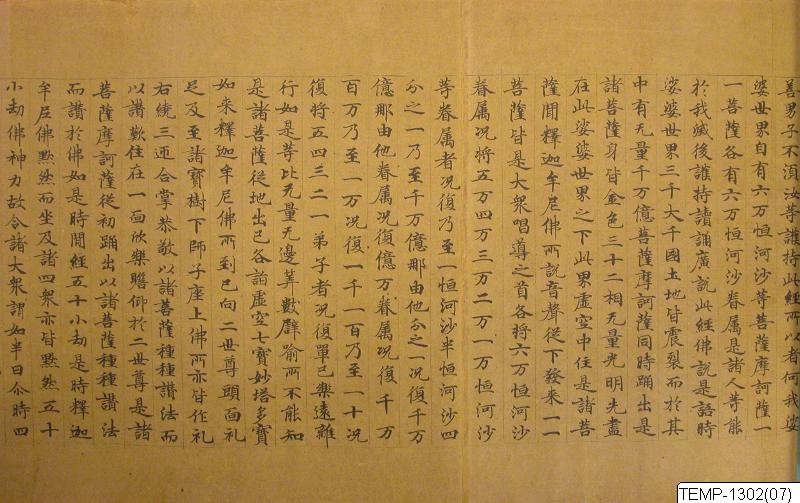 善男子不湏汝等護持此經所以者何我娑
婆世界自有六万恒河沙等菩薩摩訶薩一
一菩薩各有六万恒河沙眷属是諸人等能
於我滅後護持讀誦廣說此經佛說是語時
娑婆世界三千大千國土地皆震裂而於其
中有无量千万億菩薩摩訶薩同時踊出是
諸菩薩身皆金色三十二相无量光明先盡
在此娑婆世界之下此界虛空中住是諸菩
薩聞釋迦牟尼佛所說音聲從下發来一一
菩薩皆是大衆唱導之首各將六万恒河沙
眷属况將五万四万三万二万一万恒河沙
等眷属者况復乃至一恒河沙半恒河沙四
分之一乃至千万億那由他分之一况復千万
億那由他眷属况復億万眷属况復千万
百万乃至一万况復一千一百乃至一十况
復將五四三二一弟子者况復單已樂遠離
行如是等比无量无邊筭數譬喻所不能知
是諸菩薩從地出已各詣虛空七寳妙塔多寳
如来釋迦牟尼佛所到已向二世尊頭面礼
足及至諸寳樹下師子座上佛所亦皆作礼
右繞三迊合掌恭敬以諸菩薩種種讃法而
以讃歎住在一面欣樂瞻仰於二世尊是諸
菩薩摩訶薩從初踊出以諸菩薩種種讃法
而讃於佛如是時閒經五十小劫是時釋迦
牟尼佛黙然而坐及諸四衆亦皆黙然五十
小劫佛神力故令諸大衆謂如半日尒時四
TEMP-1302(07)